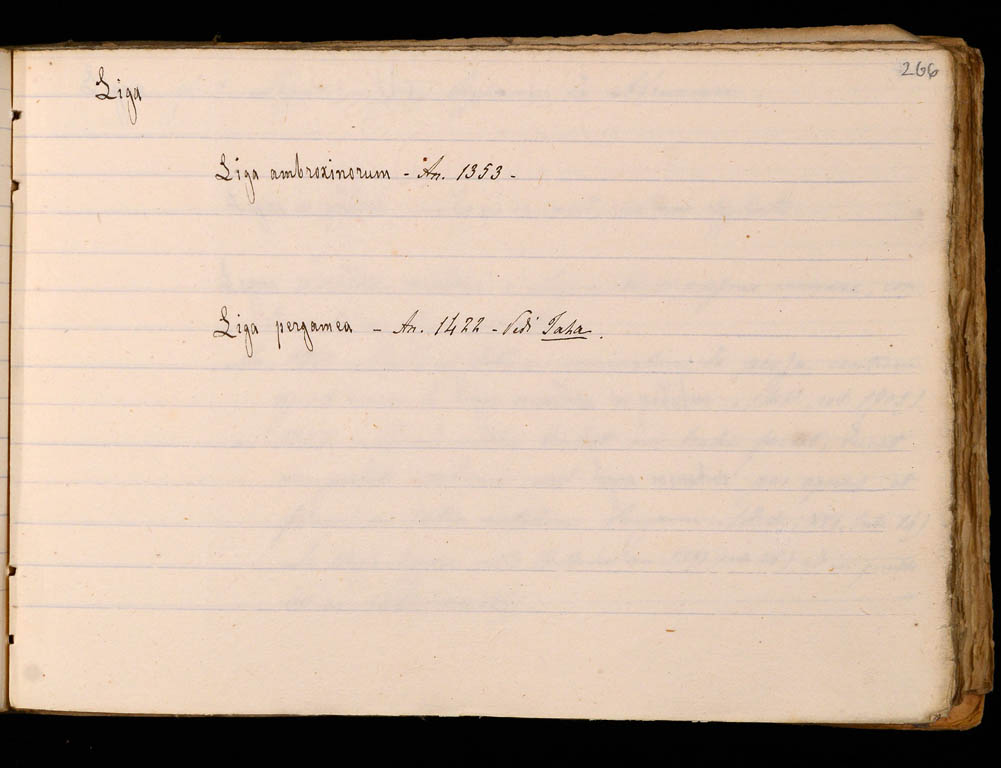 266
Liga
Liga ambroxinorum - An. 1353 -
Liga pergamea - An. 1422 - Vedi